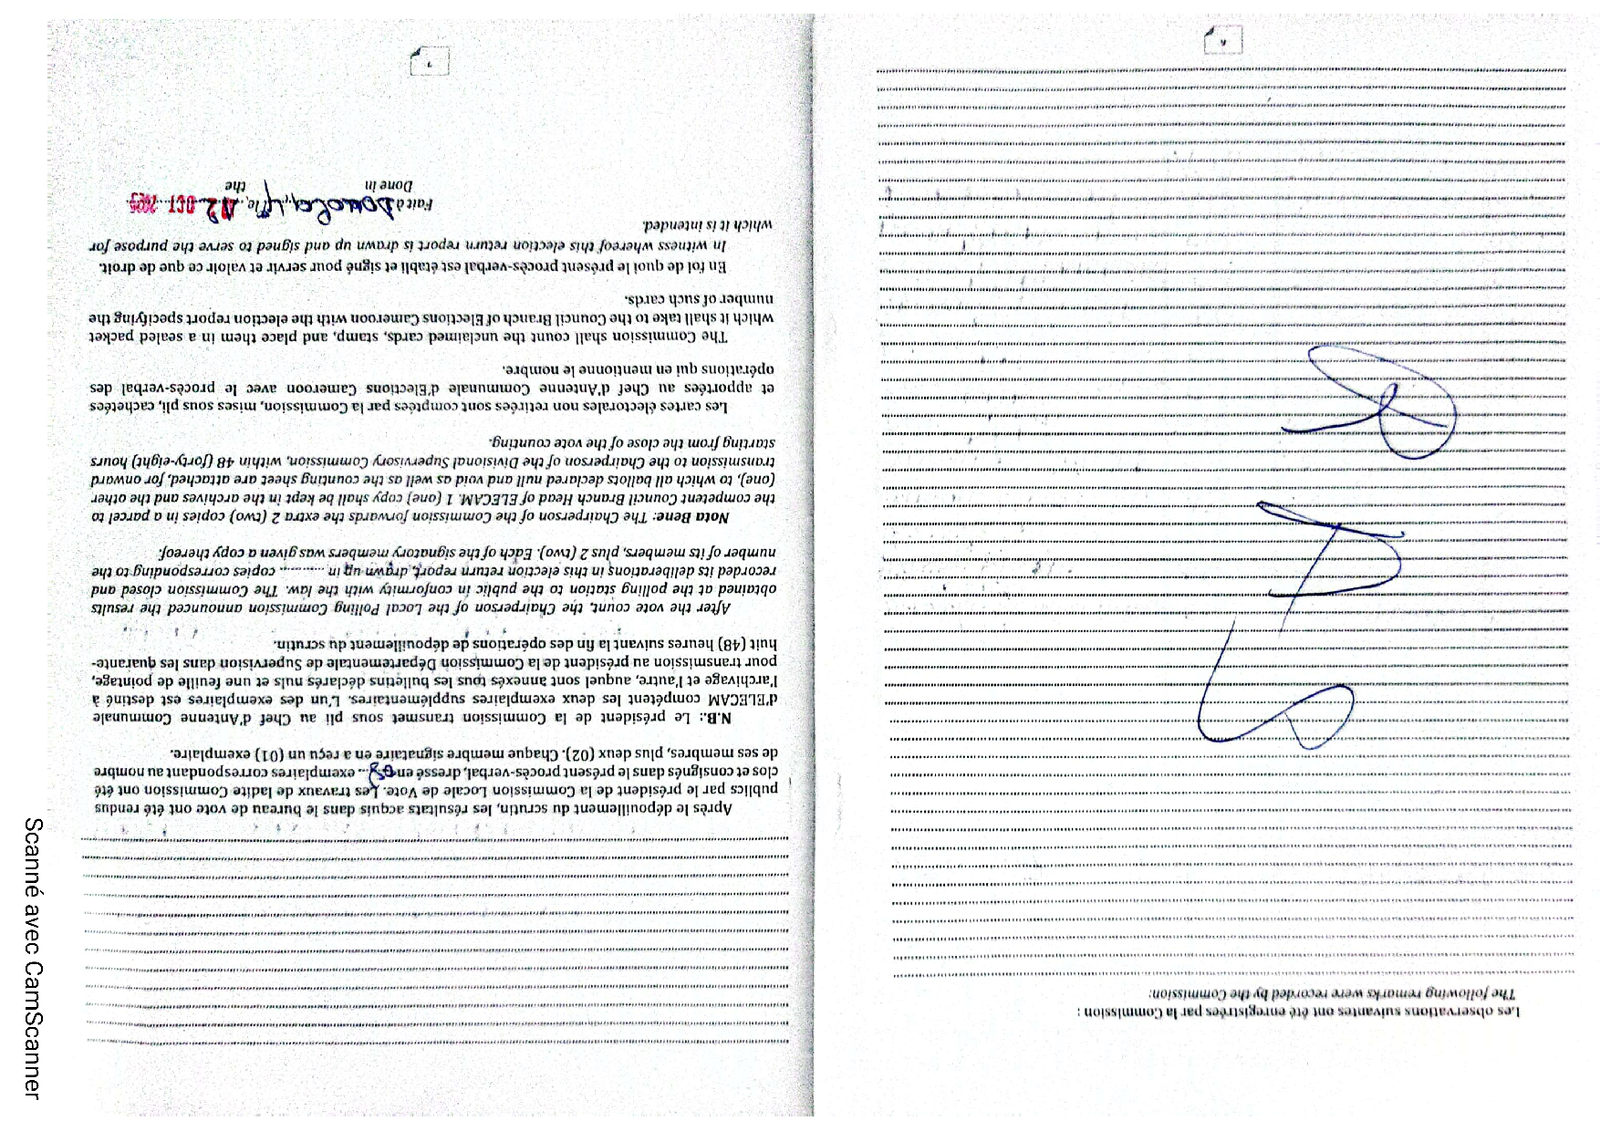 Les observations suivantes ont été enregistrées par la Commission :
The following remarks were recorded by the Commission:
Après le dépouillement du scrutin, les résultats acquis dans le bureau de vote ont été rendus
publics par le président de la Commission Locale de Vote. Les travaux de ladite Commission ont été
clos et consignés dans le présent procès-verbal, dressé en 08 exemplaires correspondant au nombre
de ses membres, plus deux (02). Chaque membre signataire en a reçu un (01) exemplaire.
N.B.: Le président de la Commission transmet sous pli au Chef d'Antenne Communale
d'ELECAM compétent les deux exemplaires supplémentaires. L'un des exemplaires est destiné à
l'archivage et l'autre, auquel sont annexés tous les bulletins déclarés nuls et une feuille de pointage,
pour transmission au président de la Commission Départementale de Supervision dans les quarante-
huit (48) heures suivant la fin des opérations de dépouillement du scrutin.
After the vote count, the Chairperson of the Local Polling Commission announced the results
obtained at the polling station to the public in conformity with the law. The Commission closed and
recorded its deliberations in this election return report, drawn up in ........... copies corresponding to the
number of its members, plus 2 (two). Each of the signatory members was given a copy thereof.
Nota Bene: The Chairperson of the Commission forwards the extra 2 (two) copies in a parcel to
the competent Council Branch Head of ELECAM. 1 (one) copy shall be kept in the archives and the other
(one), to which all ballots declared null and void as well as the counting sheet are attached, for onward
transmission to the Chairperson of the Divisional Supervisory Commission, within 48 (forty-eight) hours
starting from the close of the vote counting.
Les cartes électorales non retirées sont comptées par la Commission, mises sous pli, cachetées
et apportées au Chef d'Antenne Communale d'Elections Cameroon avec le procès-verbal des
opérations qui en mentionne le nombre.
The Commission shall count the unclaimed cards, stamp, and place them in a sealed packet
which it shall take to the Council Branch of Elections Cameroon with the election report specifying the
number of such cards.
En foi de quoi le présent procès-verbal est établi et signé pour servir et valoir ce que de droit.
In witness whereof this election return report is drawn up and signed to serve the purpose for
which it is intended.
Fait à Douala, le 12 OCT 2025
Done in the
Scanné avec CamScanner